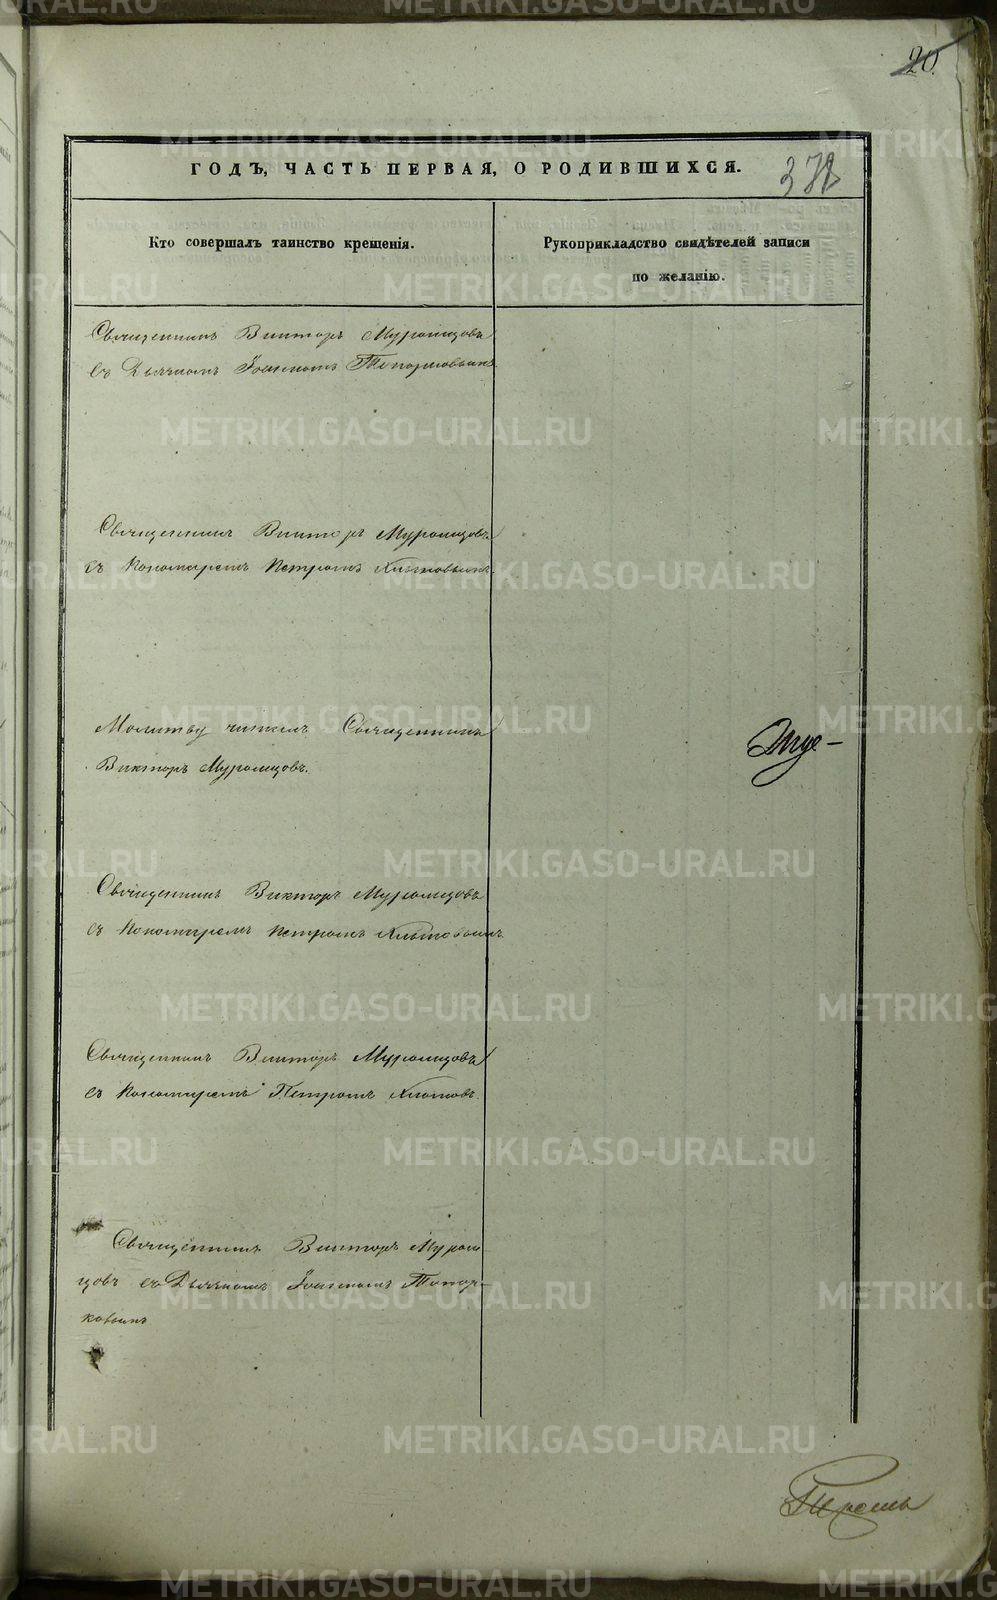 20.
ГОДЪ, ЧАСТЬ ПЕРВАЯ, О РОДИВШИХСЯ.
378
Кто совершалъ таинство крещенія.
Рукоприкладство свидѣтелей записи
по желанію.
Священникъ Викторъ Муромцовъ
Съ Дьячкомъ Іоанномъ Топорковымъ
Священникъ Викторъ Муромцовъ
съ Пономаремъ Петромъ
Молитву читалъ Священникъ
Викторъ Муромцовъ.
Священникъ Викторъ Муромцовъ
съ Пономаремъ Петромъ
Священникъ Викторъ Муромцовъ
съ Пономаремъ Петромъ
Священникъ Викторъ Муром-
цовъ съ Дьячкомъ Іоанномъ Топор-
ковымъ
METRIKI.GASO-URAL.RU